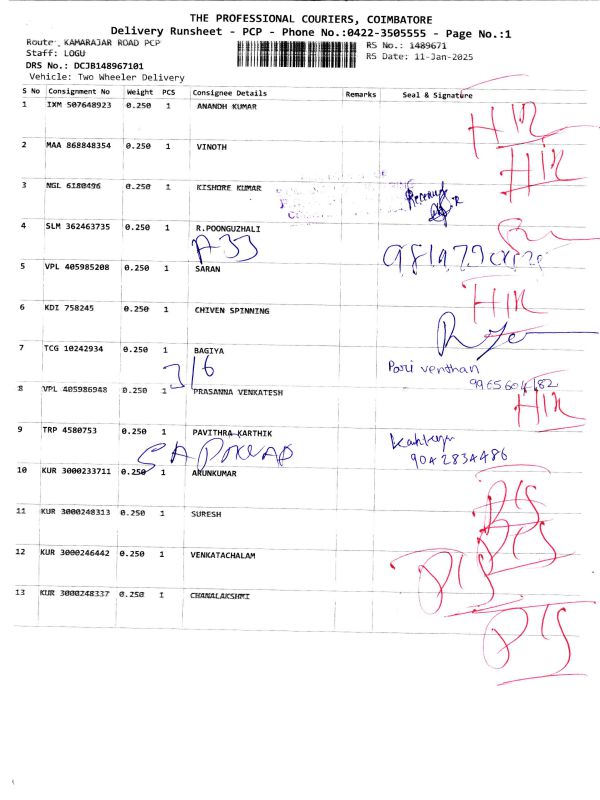 THE PROFESSIONAL COURIERS, COIMBATORE
Delivery Runsheet - PCP - Phone No.:0422-3505555 - Page No.:1
Route: KAMARAJAR ROAD PCP
RS No.: 1489671
Staff: LOGU
RS Date: 11-Jan-2025
DRS No.: DCJB148967101
Vehicle: Two Wheeler Delivery
S No Consignment No Weight PCS Consignee Details Remarks Seal & Signature
1 IXM 507648923 0.250 1 ANANDH KUMAR
2 MAA 868848354 0.250 1 VINOTH
3 NGL 6180496 0.250 1 KISHORE KUMAR
4 SLM 362463735 0.250 1 R.POONGUZHALI
A-33
5 VPL 405985208 0.250 1 SARAN
6 KDI 758245 0.250 1 CHIVEN SPINNING
7 TCG 10242934 0.250 1 BAGIYA
3/6 Pari venthan
8 VPL 405986948 0.250 1 PRASANNA VENKATESH
9 TRP 4580753 0.250 1 PAVITHRA KARTHIK
9042834486
10 KUR 3000233711 0.250 1 ARUNKUMAR
11 KUR 3000248313 0.250 1 SURESH
12 KUR 3000246442 0.250 1 VENKATACHALAM
13 KUR 3000248337 0.250 1 CHANALAKSHMI